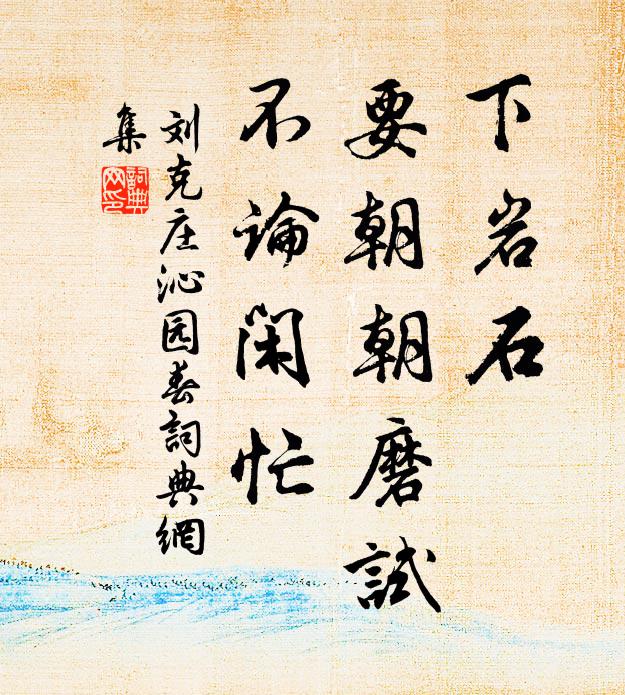 下岩石
要朝朝磨試
不論閑忙
刘克庄沁园春詞典網
集
詞典
网印